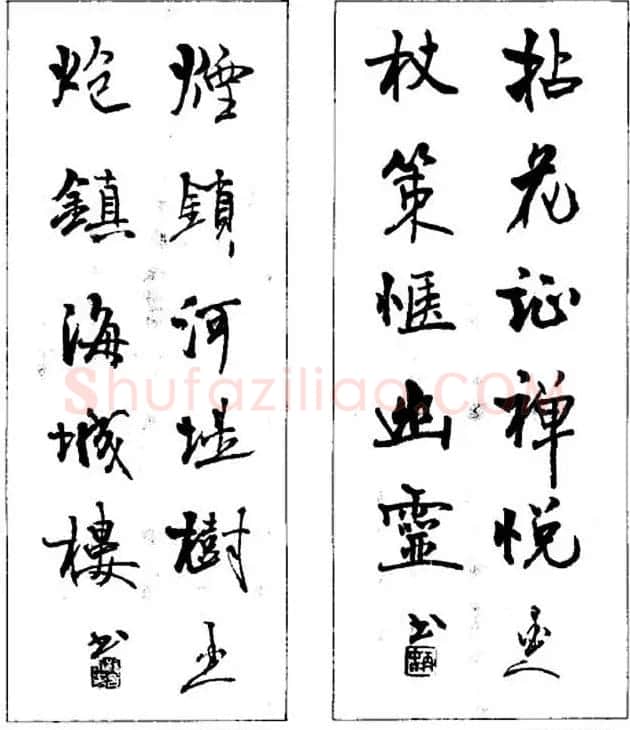 拈花证禅悦
杖策惬幽靈
书
煙鎖河堤樹
炮鎮海城樓
书
Shufaziliao.COM